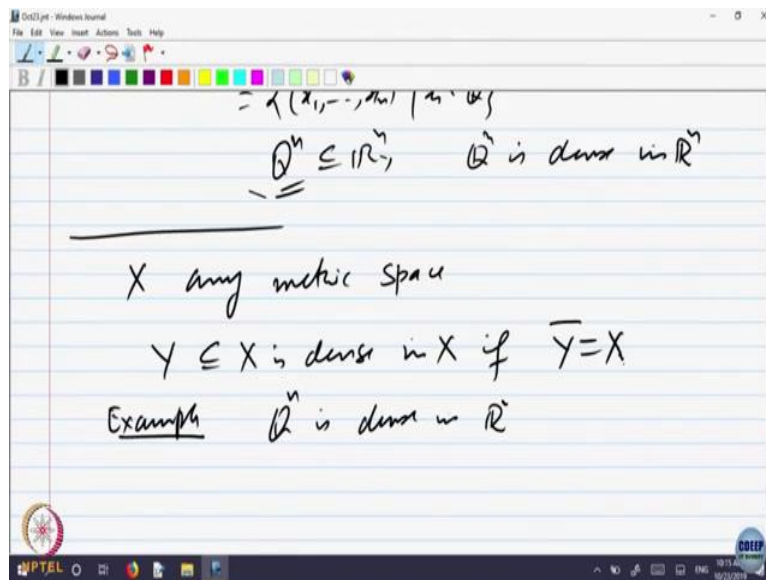 Oct23.jnt - Windows Journal
File Edit View Insert Actions Tools Help
B I
= {(x₁,--, xₙ) |
Qⁿ ⊆ ℝⁿ, Qⁿ is dense in ℝⁿ
X any metric space
Y ⊆ X is dense in X if Y̅ = X
Example Qⁿ is dense in ℝⁿ
NPTEL
CDEEP
IIT BOMBAY
ENG
10/23/2019